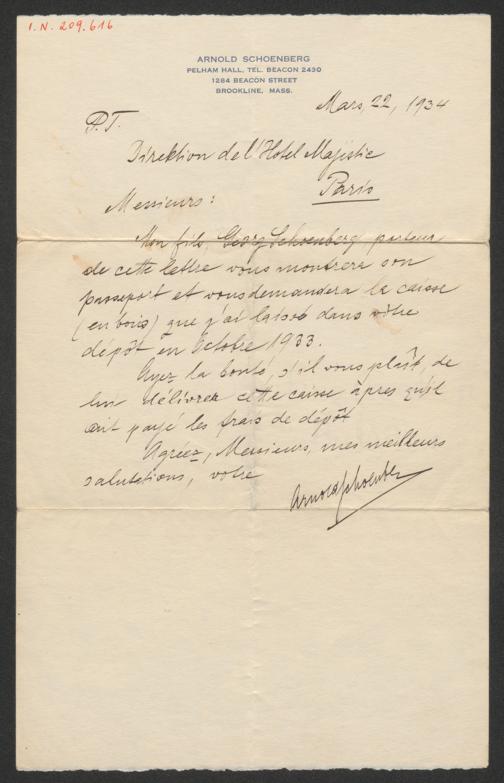 I.N. 209.616
ARNOLD SCHOENBERG
PELHAM HALL, TEL. BEACON 2430
1284 BEACON STREET
BROOKLINE, MASS.
Mars, 22, 1934
P.T.
Direktion de l'Hotel Majestic
Paris
Messieurs:
Mon fils, Georg Schoenberg porteur
de cette lettre vous montrera son
passeport et vous demandera la caisse
(en bois) que j'ai laissé dans vôtre
dépôt en Octobre 1933.
Ayez la bonté, s'il vous plaît, de
lui délivrer cette caisse àpres qu'il
ait payé les frais de dépôt
Agréez, Messieurs, mes meilleurs
salutations, votre
Arnold Schoenberg